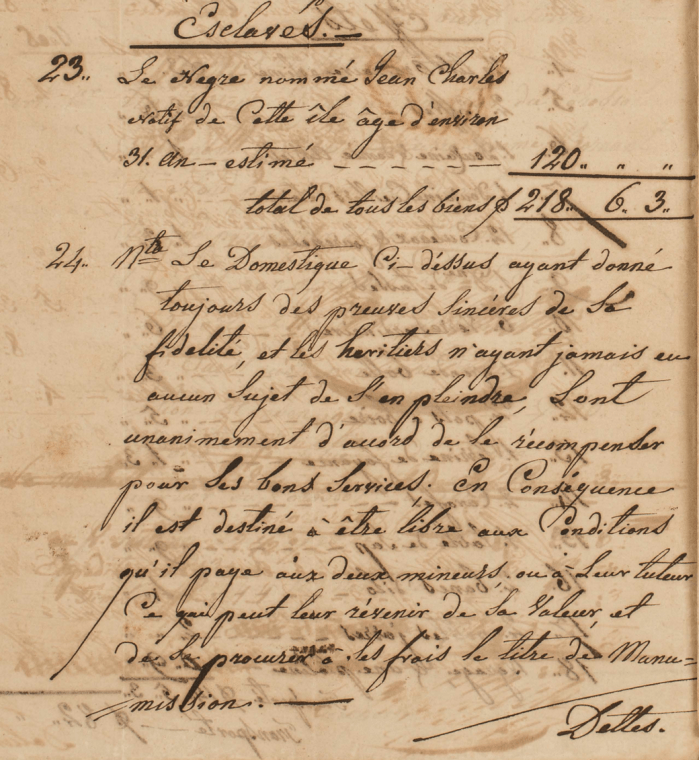 Esclavés.
23.. Le Negre nommé Jean Charles
Natif de Cette île âge d'environ
31. An — estimé — — — — — 120.. " "
total de tous les biens $ 218.. 6. 3..
24.. Nta Le Domestique Ci-déssus ayant donné
toujours des preuves Sincéres de Sa
fidelité, et les heritiers n'ayant jamais eu
aucun Sujet de S'en pleindre, Sont
unanimement d'acord de le récompenser
pour Ses bons Services. En Conséquence
il est destiné à être libre aux Conditions
qu'il paye aux deux mineurs, ou à Leur tuteur
Ce qui peut leur révenir de Sa Valeur, et
de Se procurer à Ses frais le titre de Manu=
mission. —
Dettes.